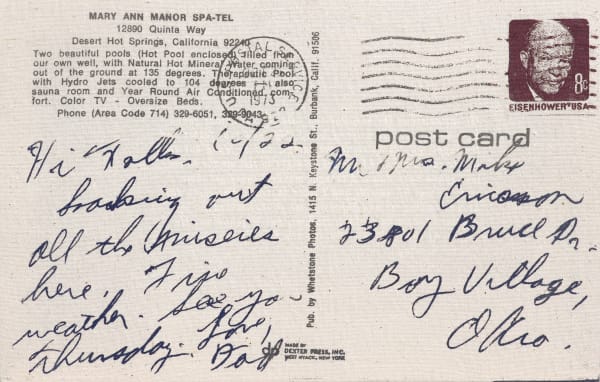 MARY ANN MANOR SPA-TEL
12890 Quinta Way
Desert Hot Springs, California 92240
Two beautiful pools (Hot Pool enclosed) filled from
our own well, with Natural Hot Mineral Water coming
out of the ground at 135 degrees. Therapeutic Pool
with Hydro Jets cooled to 104 degrees — also
sauna room and Year Round Air Conditioned com-
fort. Color TV - Oversize Beds.
Phone (Area Code 714) 329-6051, 329-9043
Hi Folks,
soaking out
all the miseries
here. Fine
weather. See you
Thursday. Love,
Dad
Pub. by Whetstone Photos, 1415 N. Keystone St., Burbank, Calif. 91506
1973
8c
EISENHOWER·USA
post card
Mr Mrs. Mike
Ericson
23801 Bruce Dr.
Bay Village,
Ohio.
dp MADE BY
DEXTER PRESS, INC.
WEST NYACK, NEW YORK